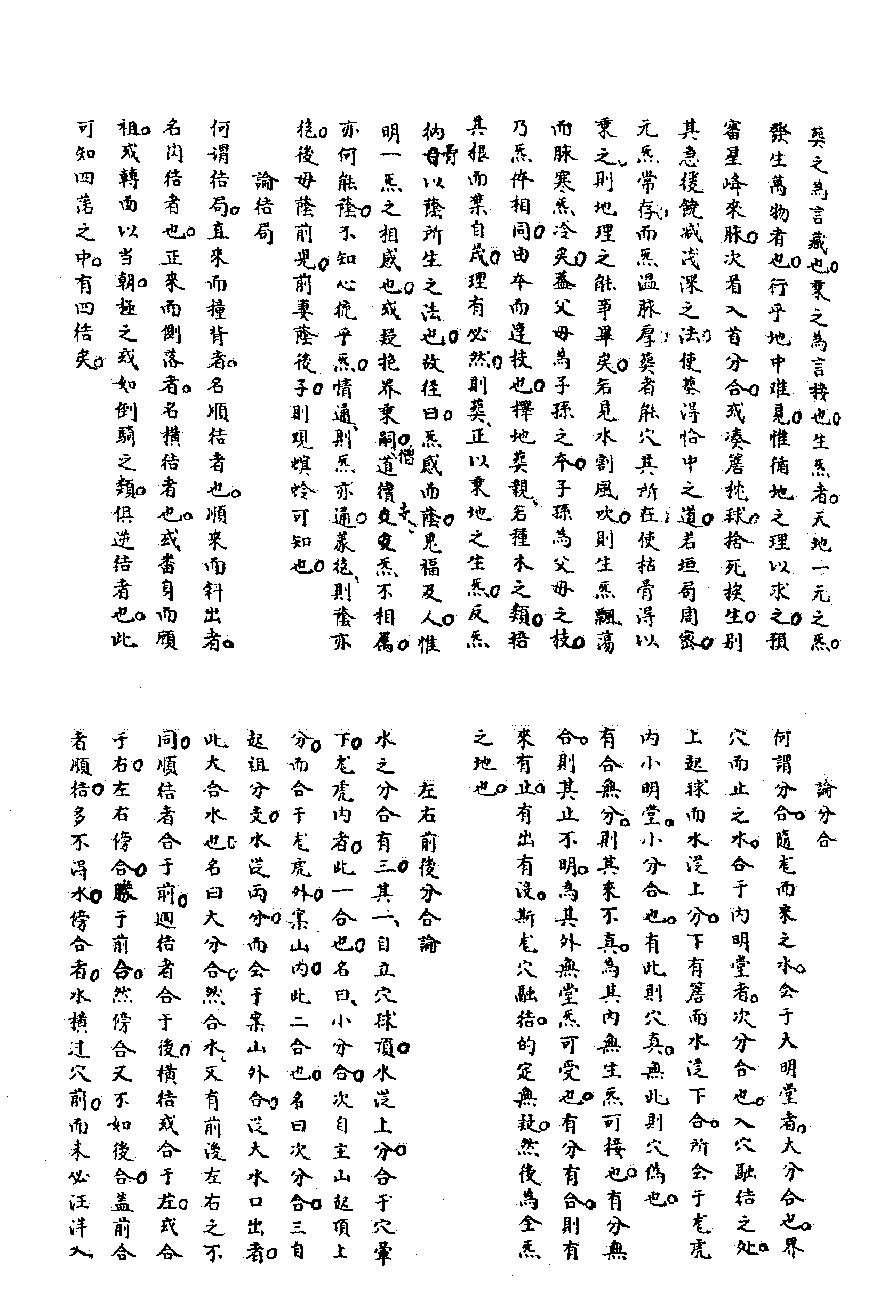 葬之為言藏也乘之為言接也生炁者天地一元之炁
發生萬物者也行乎地中难見惟循地之理以求之預
審星峰來脉次看入首分合或凑簷枕球捨死挨生别
其急緩饒减浅深之法使葬得恰中之道若垣局周密
元炁常存而炁温脉厚葬者能穴其所在使枯骨得以
乘之則地理之能事畢矣若見水割風吹則生炁飄蕩
而脉寒炁冷矣蓋父母為子孫之本子孫為父母之枝
乃炁体相同由本而達枝也擇地葬親若種木之類培
其根而葉自茂理有必然則葬正以乘地之生炁反炁
納骨以蔭所生之法也故徑曰炁感而蔭鬼福及人惟
明一炁之相感也或疑抱界乘嗣僧道續炁不相属
亦何能蔭不知心従乎炁情通則炁亦通義抱則蔭亦
抱後母蔭前児前妻蔭後子則現螟蛉可知也
論结局
何謂结局直來而撞背者名順结者也順來而斜出者
名闪结者也正來而側落者名横结者也或畨身而顾
祖或轉面以当朝極之或如倒騎之類俱逆结者也此
可知四落之中有四结矣
論分合
何謂分合隨龙而來之水会于大明堂者大分合也界
穴而止之水合于内明堂者次分合也入穴融结之处
上起球而水従上分下有簷而水従下合所会于龙虎
内小明堂小分合也有此則穴真無此則穴偽也
有合無分則其來不真為其内無生炁可接也有分無
合則其止不明為其外無堂炁可受也有分有合則有
來有止有出有没斯龙穴融结的定無疑然後為全炁
之地也
左右前後分合論
水之分合有三其一自立穴球頂水従上分合于穴暈
下龙虎内者此一合也名曰小分合次自主山起頂上
分而合于龙虎外案山内此二合也名曰次分合三自
起祖分支水従两分而会于案山外合従大水口出者
此大合水也名曰大分合然合水又有前後左右之不
同順结者合于前廻结者合于後横结或合于左或合
于右左右傍合勝于前合然傍合又不如後合盖前合
者順结多不淂水傍合者水横过穴前而未必汪洋入